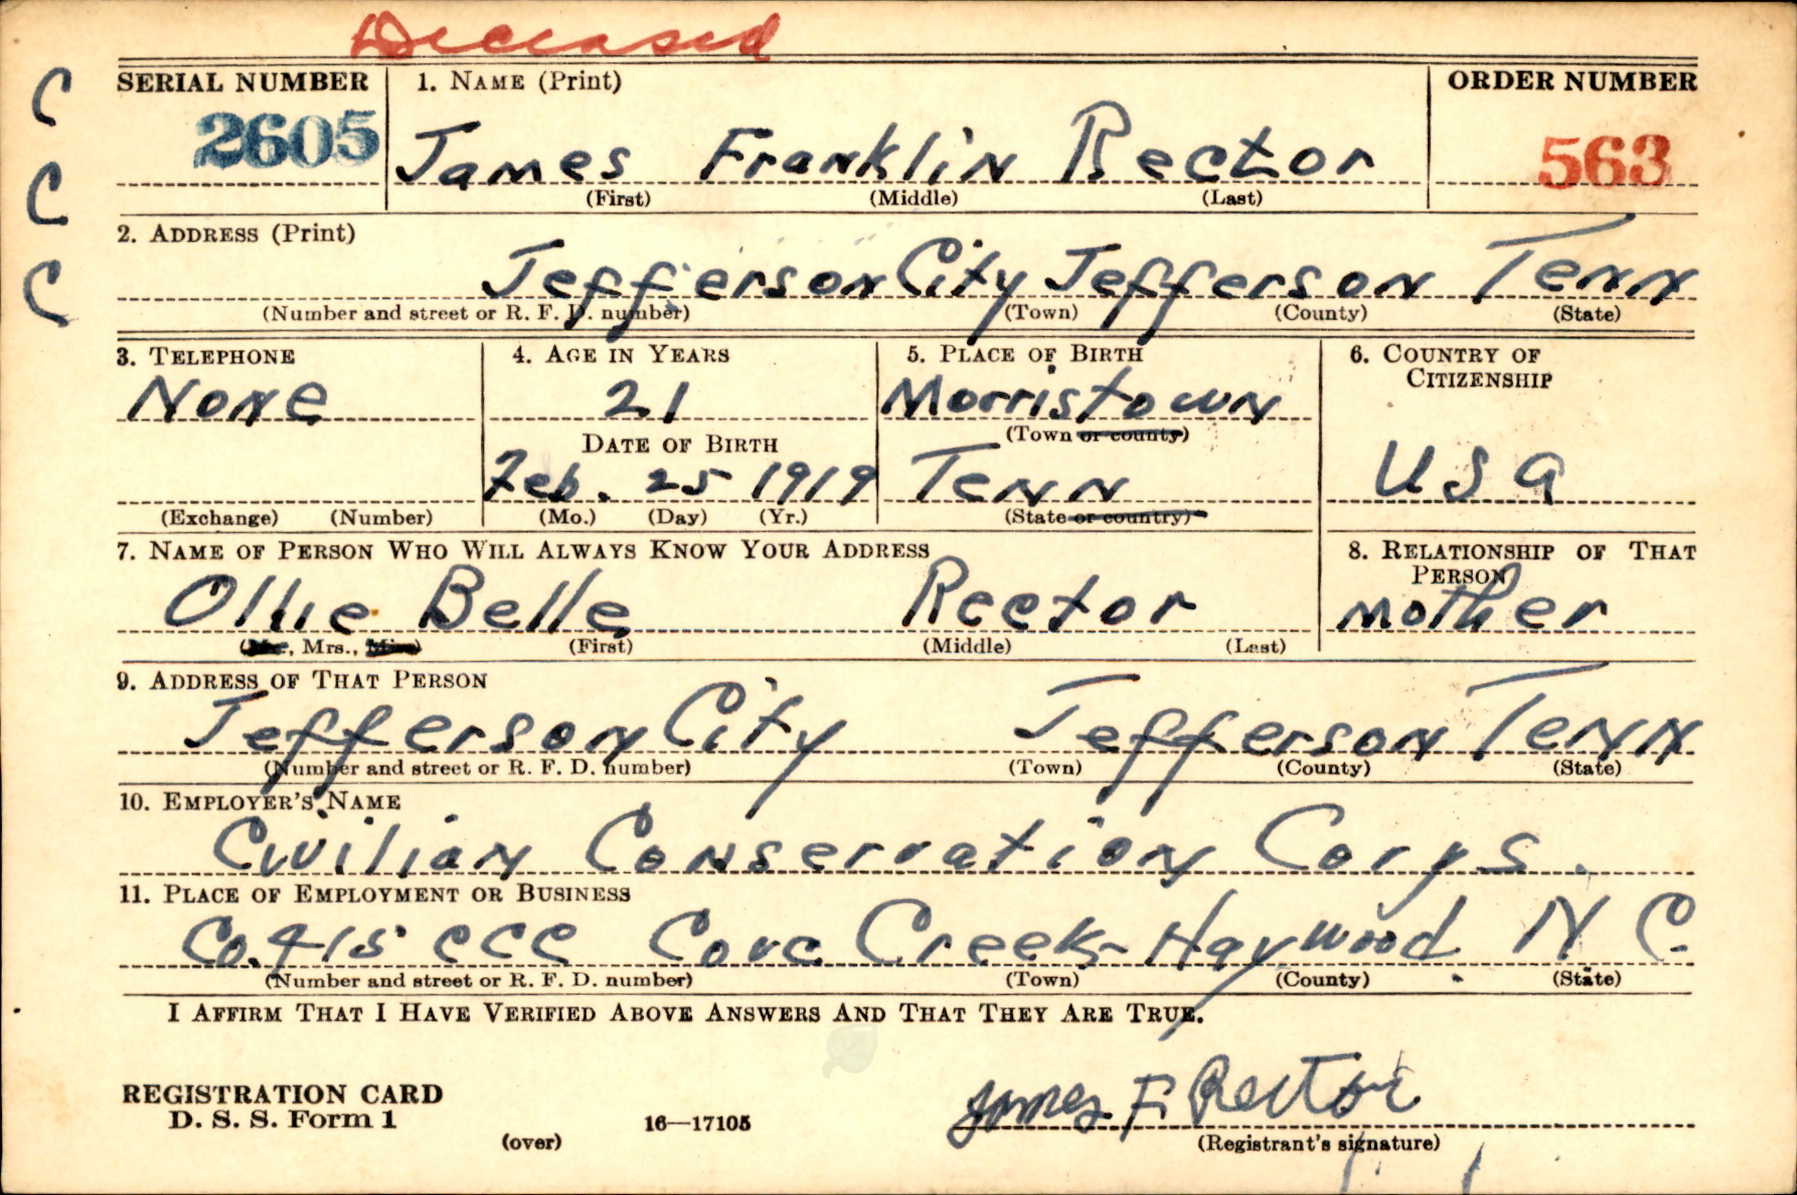 Deceased
C
C
C
SERIAL NUMBER 1. NAME (Print) ORDER NUMBER
2605 James Franklin Rector 563
(First) (Middle) (Last)
2. ADDRESS (Print)
Jefferson City Jefferson Tenn
(Number and street or R. F. D. number) (Town) (County) (State)
3. TELEPHONE 4. AGE IN YEARS 5. PLACE OF BIRTH 6. COUNTRY OF CITIZENSHIP
None 21 Morristown
DATE OF BIRTH (Town or county)
Feb. 25 1919 Tenn USA
(Exchange) (Number) (Mo.) (Day) (Yr.) (State or country)
7. NAME OF PERSON WHO WILL ALWAYS KNOW YOUR ADDRESS 8. RELATIONSHIP OF THAT PERSON
Ollie Belle Rector mother
(Mr., Mrs., Miss) (First) (Middle) (Last)
9. ADDRESS OF THAT PERSON
Jefferson City Jefferson Tenn
(Number and street or R. F. D. number) (Town) (County) (State)
10. EMPLOYER'S NAME
Civilian Conservation Corps.
11. PLACE OF EMPLOYMENT OR BUSINESS
Co. 415 CCC Cove Creek - Haywood N C.
(Number and street or R. F. D. number) (Town) (County) (State)
I AFFIRM THAT I HAVE VERIFIED ABOVE ANSWERS AND THAT THEY ARE TRUE.
James F. Rector
REGISTRATION CARD
D. S. S. Form 1 16—17105
(over) (Registrant's signature)